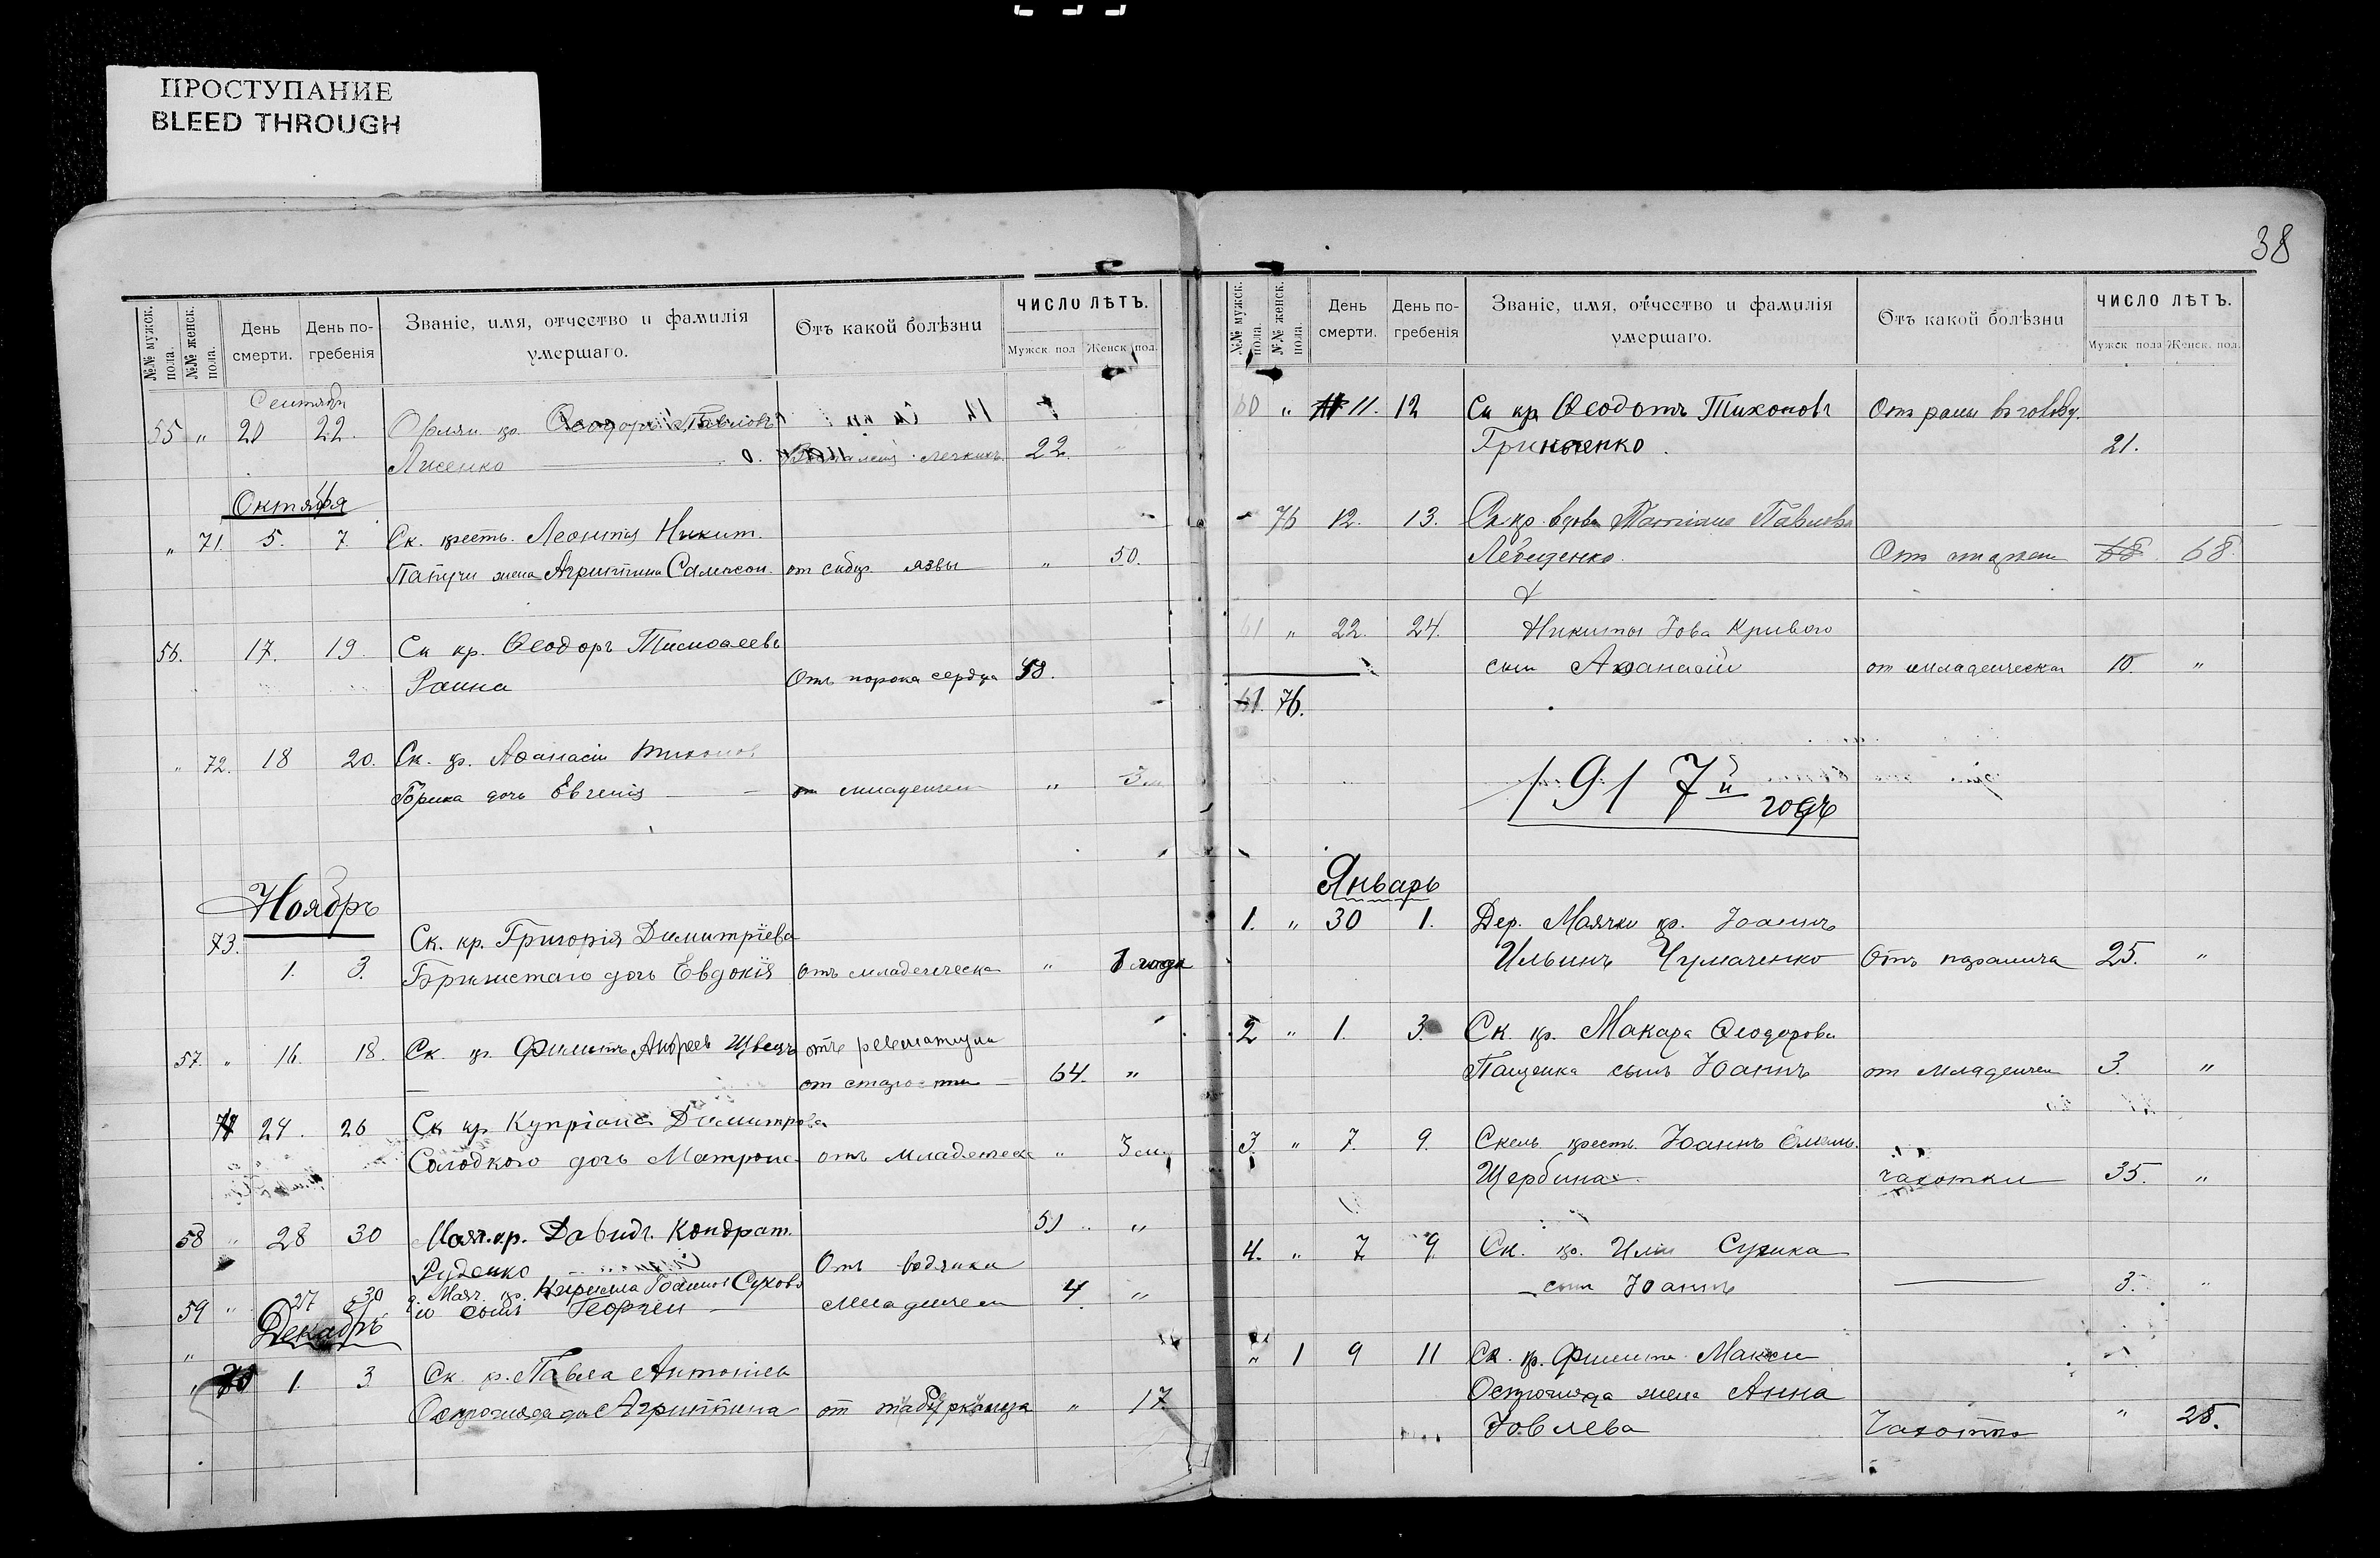 ПРОСТУПАНИЕ
BLEED THROUGH
38
№№ мужск. пола. №№ женск. пола. День смерти. День погребенія Званіе, имя, отчество и фамилія умершаго. Отъ какой болѣзни ЧИСЛО ЛѢТЪ. Мужск пол Женск. пол.
Сентябр
55 " 20 22. Орлян кр. Ѳеодоръ Павловъ
Лисенко легкихъ 22.
Октября
" 71. 5. 7. Ск. крестъ. Леонтія Никит.
Папучи жена Агриппина Сампсон. от сибир. язвы " 50.
56. 17. 19. Ск кр. Ѳеодоръ Тимоѳеевъ
Раина Отъ порока сердца
" 72. 18 20. Ск. кр. Аѳанасія Тихонов
дочь Евгенія от младенчес " 3
Ноябрь
73. Ск. кр. Григорія Димитріева
1. 3. дочь Евдокія отъ младенческа " 1 года
57. " 16. 18. Ск. кр. Филиппъ Андреев Швецъ отъ ревматизма
от старости 64. "
24. 26 Ск кр Купріана Димитрова
Солодкого дочь Матрона отъ младенческ " 3 м.
58 " 28 30 Маяч. кр. Давидъ Кондрат. 51 "
Руденко Отъ водянки
59 " 27 30 д. Маяч. кр. Кирилла Іоаннов Сухово
го сынъ Георгій младенчес 4 "
Декабрь
" 1. 3 Ск. кр. Павла Антоніев
дочь Агриппина от " 17
№№ мужск. пола. №№ женск. пола. День смерти. День погребенія Званіе, имя, отчество и фамилія умершаго. Отъ какой болѣзни ЧИСЛО ЛѢТЪ. Мужск. пола Женск. пол.
60 " 11. 12 Ск кр Ѳеодотъ Тихоновъ Отъ раны въ голову.
Гриненко. 21.
76 12. 13. Ск кр. вдова Татіана Павлова
Отъ 68 68.
61 " 22. 24. Никиты Іова Кривого
сын Аѳанасій от младенческой 10. "
61. 76.
1917й годъ
Январь
1. " 30 1. Дер. Маячки кр. Іоаннъ
Ильинъ Чумаченко Отъ паралича 25. "
2 " 1. 3. Ск. кр. Макара Ѳеодорова
Пащенка сынъ Іоаннъ от младенчес 3. "
3. " 7. 9. Скель. крестъ. Іоаннъ Емель.
Щербина. чахотки 35. "
4. " 7 9. Ск. кр. Иліи
сын Іоаннъ 3. "
" 1 9 11 Ск. кр. Филиппа Макси
жена Анна
Іовлева Чахотка " 28.